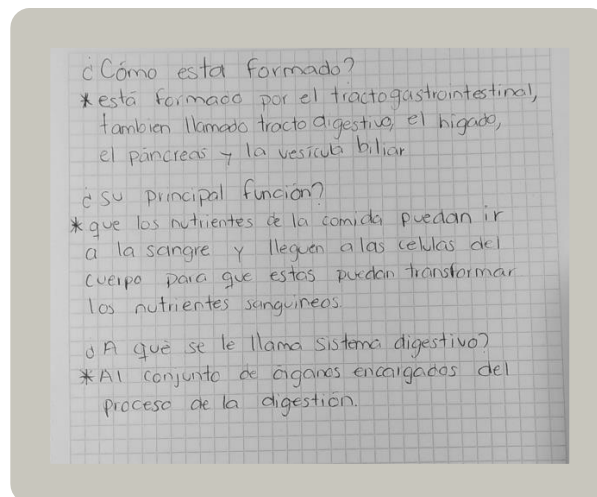 ¿Cómo esta formado?
* está formado por el tractogastrointestinal,
tambien llamado tracto digestivo, el higado,
el páncreas y la vesicula biliar
¿su principal función?
* que los nutrientes de la comida puedan ir
a la sangre y lleguen a las celulas del
cuerpo para que estas puedan transformar
los nutrientes sanguineos.
¿A qué se le llama sistema digestivo?
* Al conjunto de óganos encargados del
proceso de la digestión.